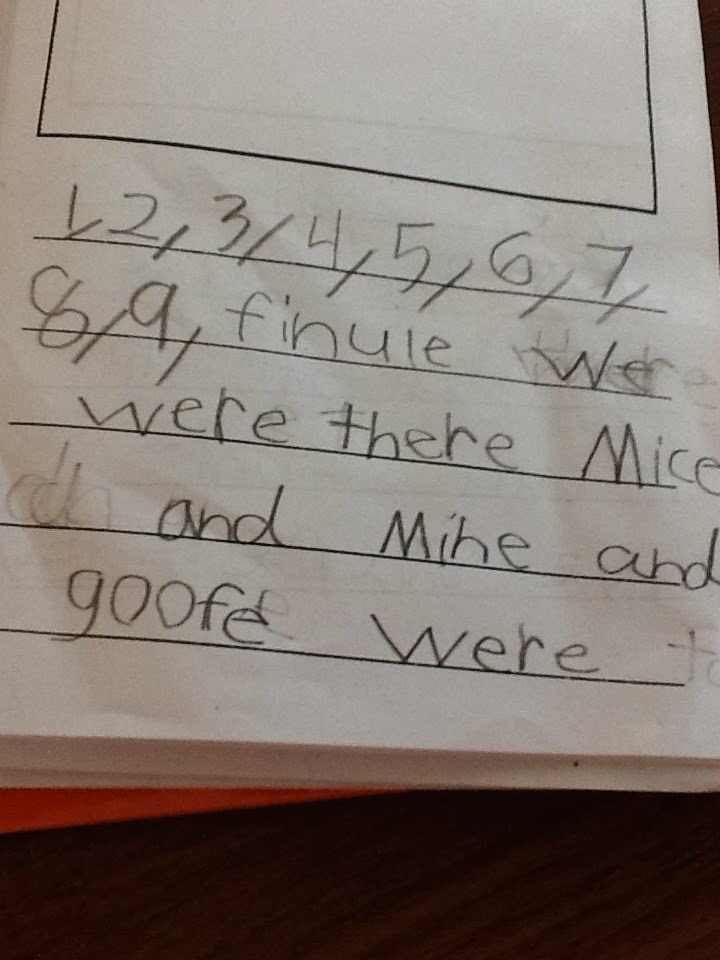 1, 2, 3, 4, 5, 6, 7,
8, 9, finule we
were there Mice
and Mine and
goofe were